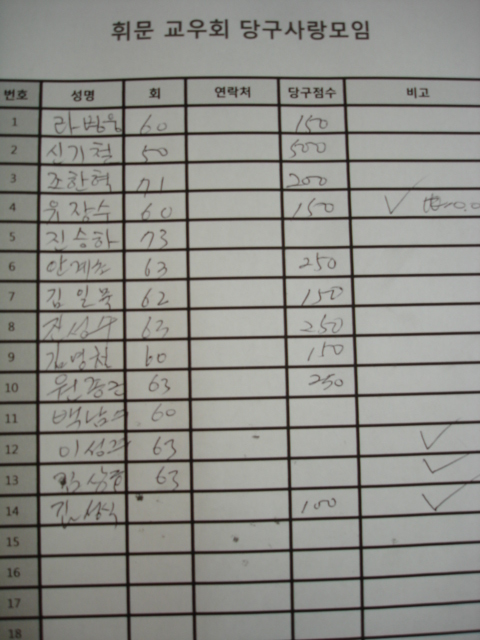 휘문 교우회 당구사랑모임
번호 성명 회 연락처 당구점수 비고
1 60 150
2 신기철 50 500
3 조한혁 71 200
4 유장수 60 150
5 진승하 73
6 63 250
7 김일묵 62 150
8 63 250
9 김영천 60 150
10 63 250
11 60
12 63
13 63
14 김성식 100
15
16
17
18